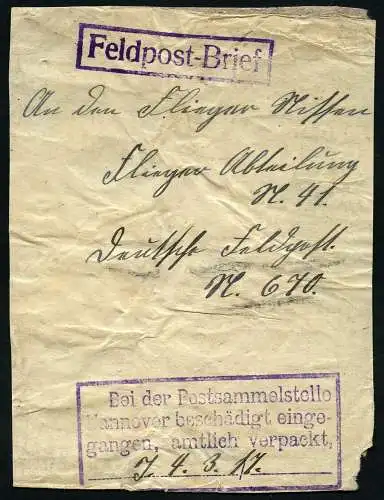 Feldpost-Brief
An den Flieger Nissen
Flieger Abteilung
N. 41.
Deutsche Feldpost.
N. 670.
Bei der Postsammelstelle
Hannover beschädigt einge-
gangen, amtlich verpackt,
4. 3. 17.